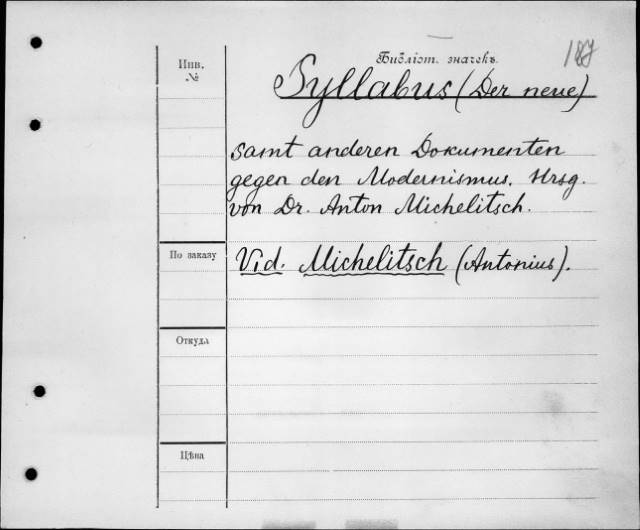 Библіот. значекъ.
187
Инв.
№
Syllabus (Der neue)
samt anderen Dokumenten
gegen den Modernismus. Hrsg.
von Dr. Anton Michelitsch.
По заказу
Vid. Michelitsch (Antonius).
Откуда
Цѣна